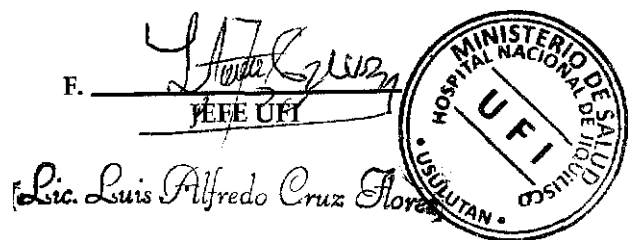 F.
JEFE UFI
Lic. Luis Alfredo Cruz Flores
MINISTERIO DE SALUD
HOSPITAL NACIONAL DE JIQUILISCO
UFI
• USULUTAN •